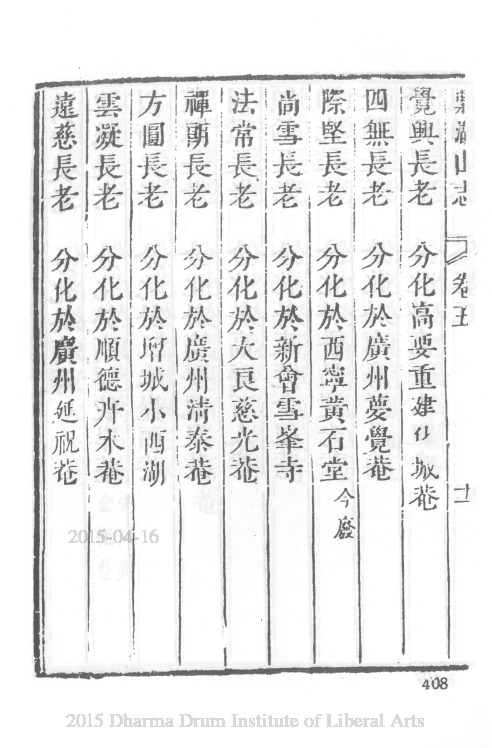 鼎湖山志 卷五 十一
覺興長老 分化高要重建化城菴
四無長老 分化於廣州夢覺菴
際堅長老 分化於西寧黃石堂 今廢
尚雪長老 分化於新會雪峯寺
法常長老 分化於大良慈光菴
禪長老 分化於廣州清泰菴
方圓長老 分化於增城小西湖
雲凝長老 分化於順德卉木菴
遠慈長老 分化於廣州延祝菴
2015-04-16
408
2015 Dharma Drum Institute of Liberal Arts